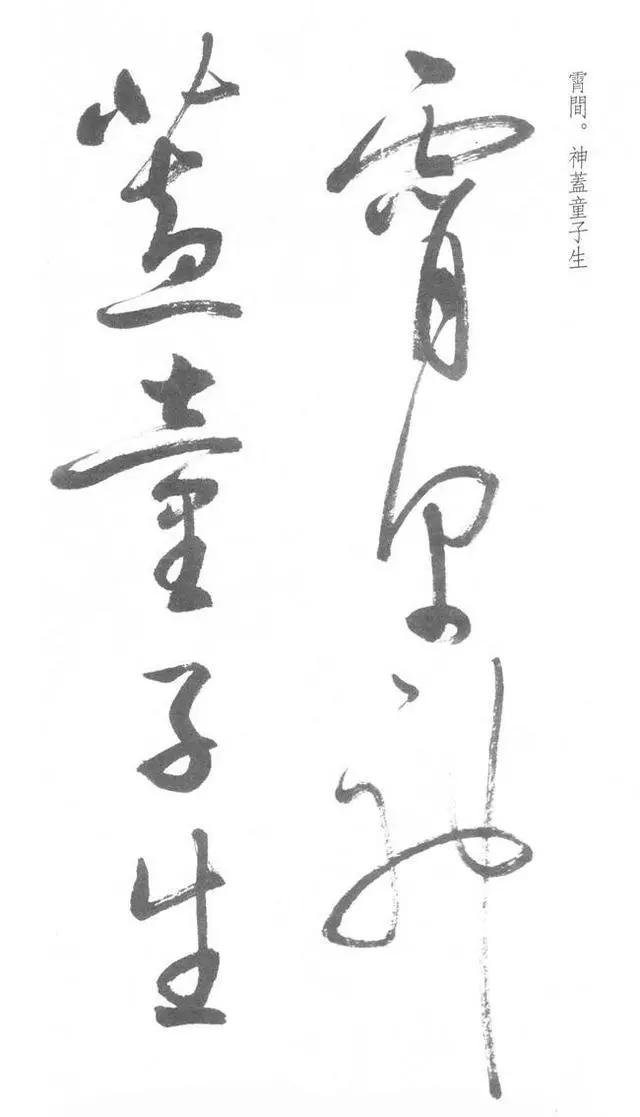 霄間。神蓋童子生
霄間神
蓋童子生